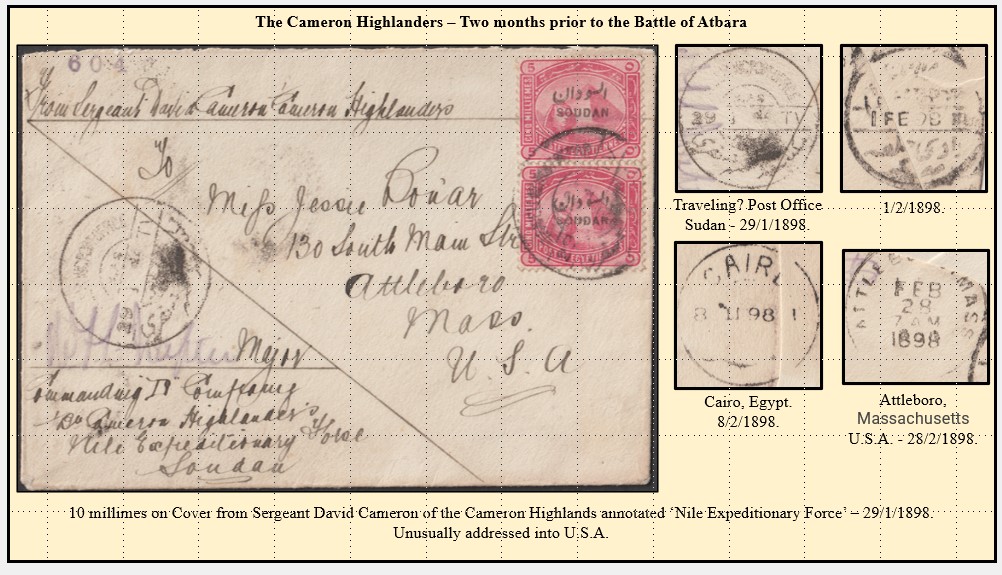 The Cameron Highlanders – Two months prior to the Battle of Atbara
604
From Sergeant David Cameron Cameron Highlanders
To
Miss Jessie Bonar
130 South Main Str
Attleboro
Mass.
U. S. A
Major
Commanding D Company
Cameron Highlanders
Nile Expeditionary Force
Soudan
السودان
SOUDAN
السودان
SOUDAN
29
Traveling? Post Office
Sudan - 29/1/1898.
1 FE
1/2/1898.
CAIR
8 II 98
Cairo, Egypt.
8/2/1898.
ATTLE MASS
FEB
28
7 AM
1898
Attleboro,
Massachusetts
U.S.A. - 28/2/1898.
10 millimes on Cover from Sergeant David Cameron of the Cameron Highlands annotated ‘Nile Expeditionary Force’ – 29/1/1898.
Unusually addressed into U.S.A.